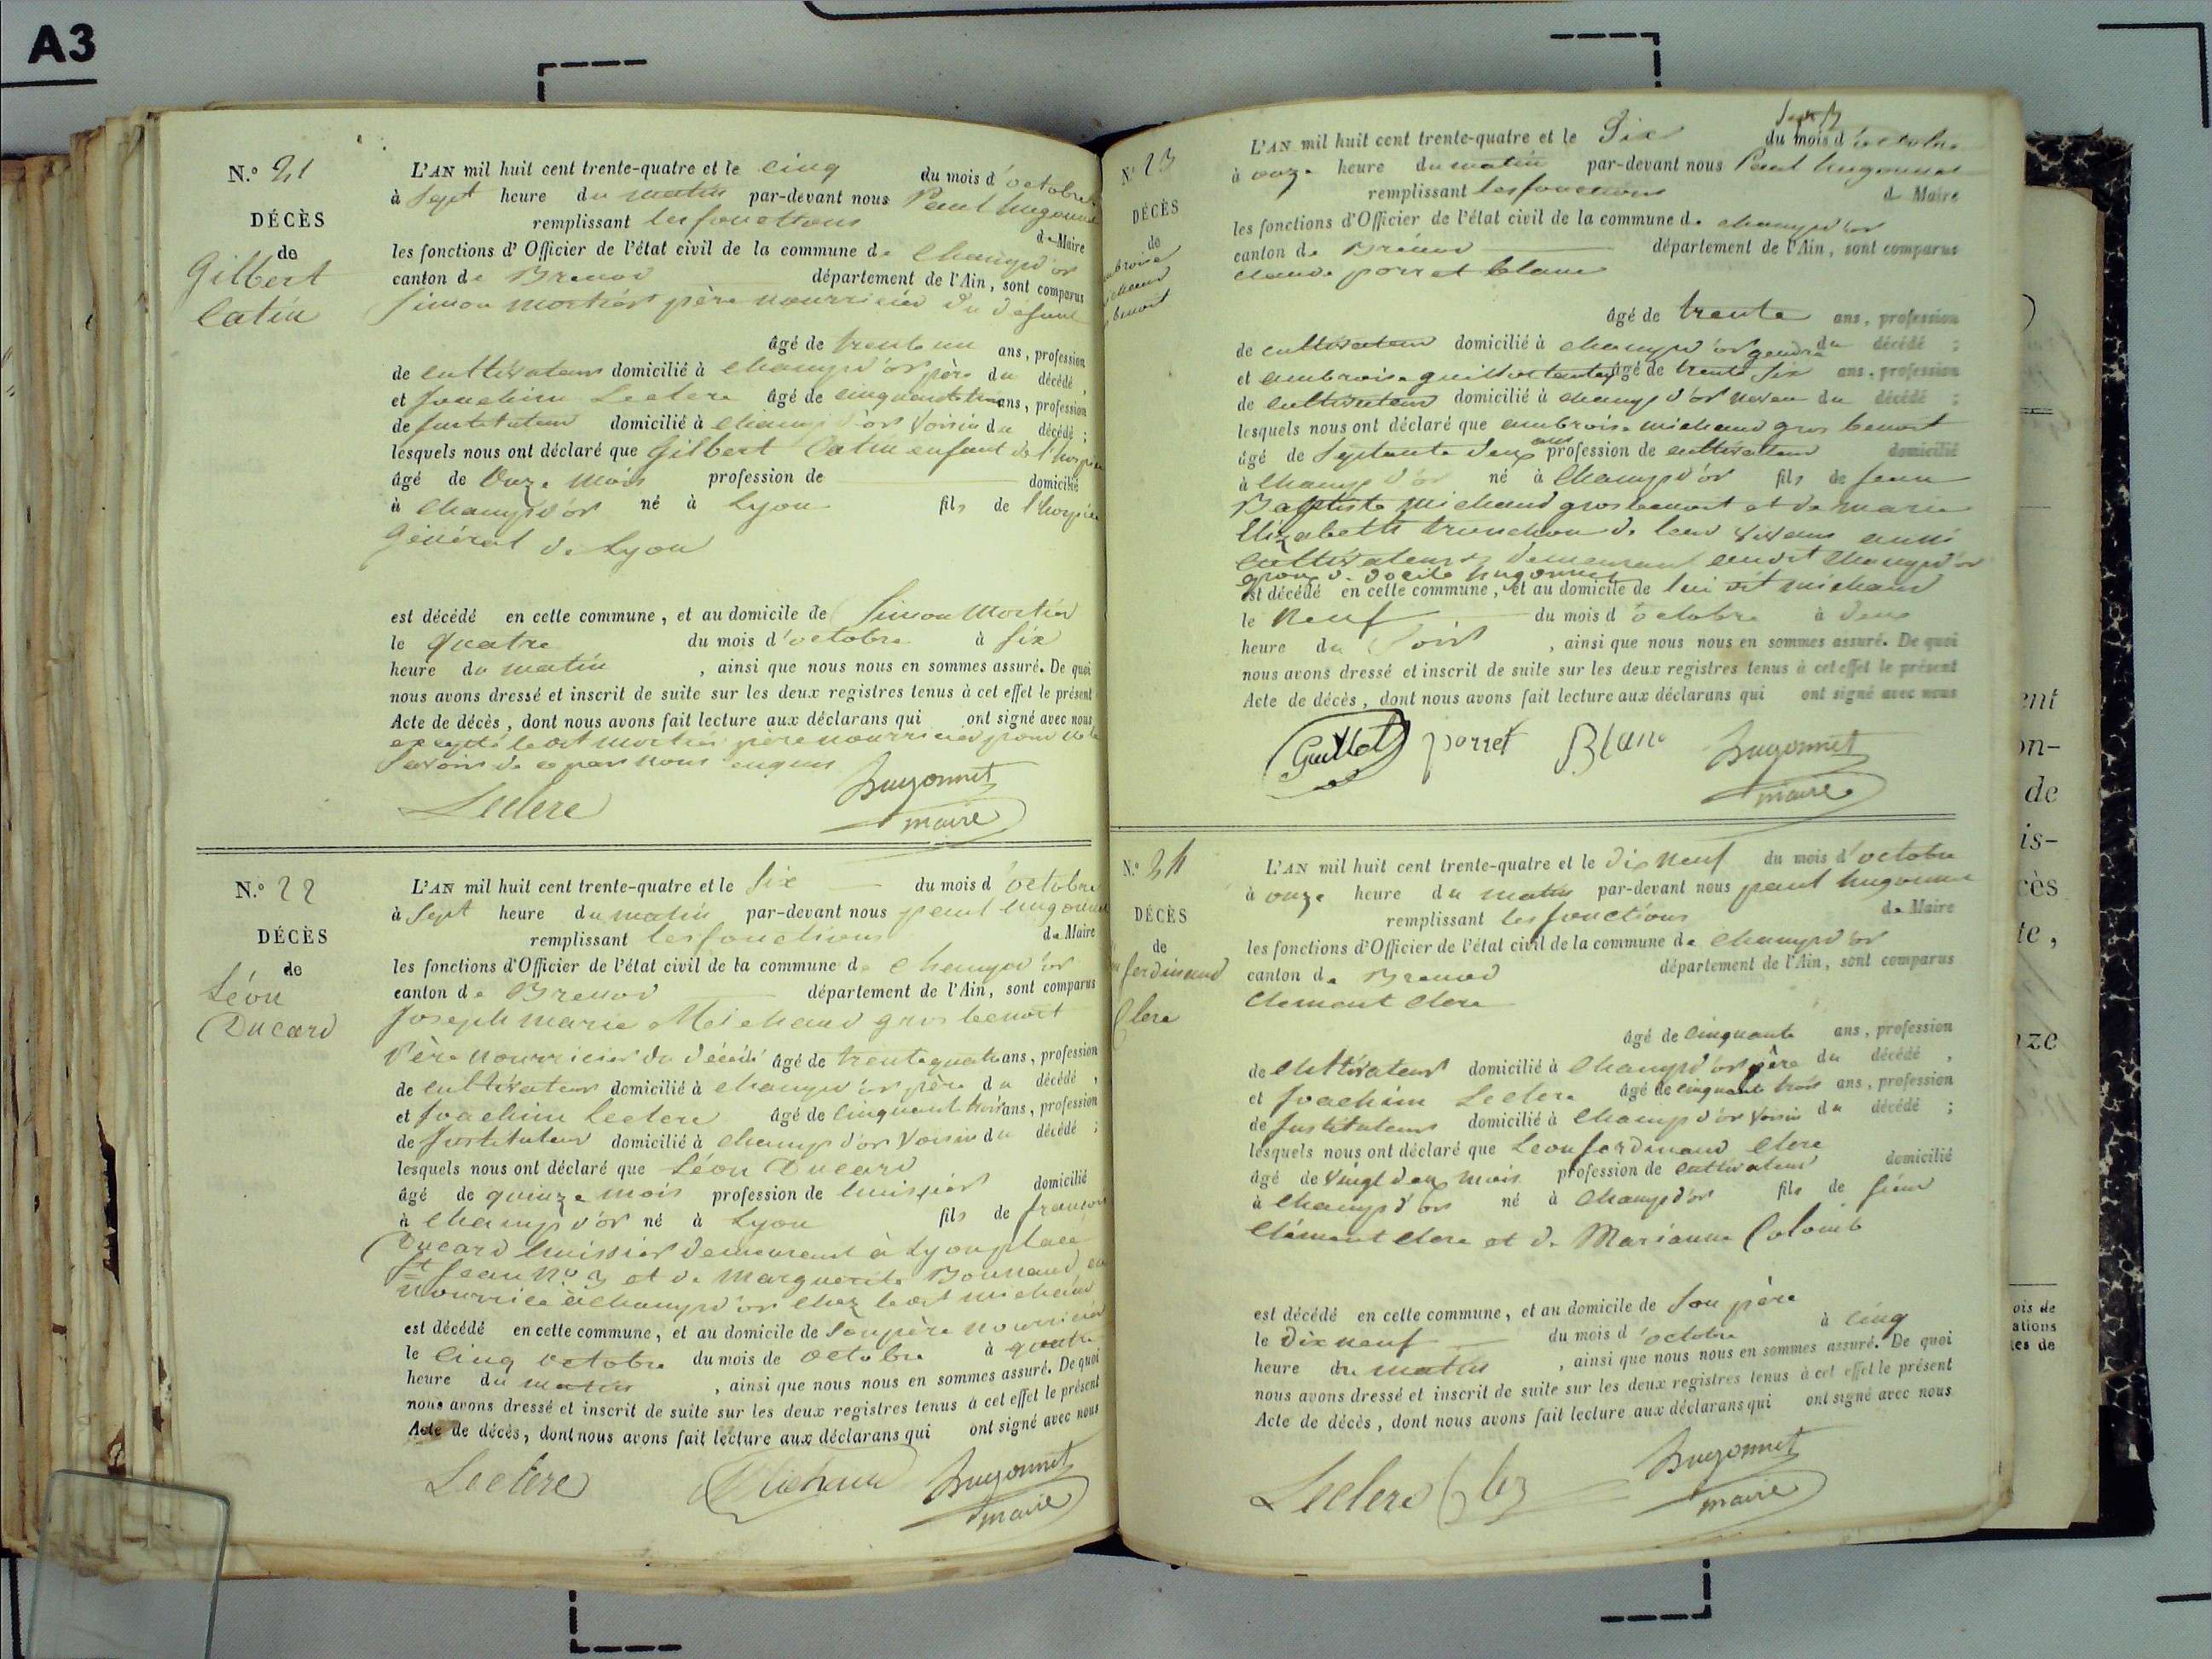 A3
N.º 21
DÉCÈS
de
Gilbert
Catin
L'AN mil huit cent trente-quatre et le cinq du mois d'octobre
à sept heure du matin par-devant nous Paul hugonnet
remplissant les fonctions de Maire
les fonctions d'Officier de l'état civil de la commune de Champd'or
canton de Brenod département de l'Ain, sont comparus
Simon Mortier père nourricier du défunt
âgé de trente un ans, profession
de cultivateur domicilié à Champd'or père du décédé,
et Joachim Leclerc âgé de cinquante trois ans, profession
de Instituteur domicilié à Champd'or voisin du décédé;
lesquels nous ont déclaré que Gilbert Catin enfant de l'hospice
âgé de Onze Mois profession de domicilié
à Champd'or né à Lyon fils de l'hospice
Général de Lyon
est décédé en cette commune, et au domicile de Simon Mortier
le quatre du mois d'octobre à six
heure du matin, ainsi que nous nous en sommes assuré. De quoi
nous avons dressé et inscrit de suite sur les deux registres tenus à cet effet le présent
Acte de décès, dont nous avons fait lecture aux déclarans qui ont signé avec nous
excepté ledit Mortier père nourricier pour ne le
savoir de ce par nous enquis
Leclerc Hugonnet
maire
N.º 22
DÉCÈS
de
Léon
Ducard
L'AN mil huit cent trente-quatre et le six du mois d'octobre
à sept heure du matin par-devant nous paul hugonnet
remplissant les fonctions de Maire
les fonctions d'Officier de l'état civil de la commune de Champd'or
canton de Brenod département de l'Ain, sont comparus
Joseph marie Michaud gros benoit
Père nourricier du décédé âgé de trente quatre ans, profession
de cultivateur domicilié à Champd'or père du décédé,
et Joachim Leclerc âgé de cinquante trois ans, profession
de Instituteur domicilié à Champd'or voisin du décédé;
lesquels nous ont déclaré que Léon Ducard
âgé de quinze mois profession de huissier domicilié
à Champd'or né à Lyon fils de françois
Ducard huissier demeurant à Lyon place
St Jean Nº 3 et de Marguerite Bonnaud en
nourrice à Champd'or chez ledit michaud
est décédé en cette commune, et au domicile de son père nourricier
le cinq octobre du mois de octobre à quatre
heure du matin, ainsi que nous nous en sommes assuré. De quoi
nous avons dressé et inscrit de suite sur les deux registres tenus à cet effet le présent
Acte de décès, dont nous avons fait lecture aux déclarans qui ont signé avec nous
Leclerc Michaud Hugonnet
maire
N.º 23
DÉCÈS
de
benoit
L'AN mil huit cent trente-quatre et le Dix du mois d'octobre
à onze heure du matin par-devant nous Paul hugonnet
remplissant les fonctions de Maire
les fonctions d'Officier de l'état civil de la commune de champd'or
canton de Brénod département de l'Ain, sont comparus
claude porret blanc
âgé de trente ans, profession
de cultivateur domicilié à champd'or gendre du décédé;
et ambroise guillot âgé de trente six ans, profession
de cultivateur domicilié à champd'or neveu du décédé;
lesquels nous ont déclaré que ambroise michaud gros benoit
âgé de septante deux ans profession de cultivateur domicilié
à Champd'or né à Champd'or fils de jean
Baptiste Michaud gros benoit et de marie
Elizabeth trunchon de leur vivans aussi
cultivateurs demeurant audit Champd'or
époux de docite hugonnet
est décédé en cette commune, et au domicile de lui dit michaud
le Neuf du mois d'octobre à deux
heure du Soir, ainsi que nous nous en sommes assuré. De quoi
nous avons dressé et inscrit de suite sur les deux registres tenus à cet effet le présent
Acte de décès, dont nous avons fait lecture aux déclarans qui ont signé avec nous
Guillot porret Blanc Hugonnet
maire
N.º 24
DÉCÈS
de
ferdinand
Clerc
L'AN mil huit cent trente-quatre et le dix neuf du mois d'octobre
à onze heure du matin par-devant nous paul hugonnet
remplissant les fonctions de Maire
les fonctions d'Officier de l'état civil de la commune de Champd'or
canton de Brenod département de l'Ain, sont comparus
Clement Clerc
âgé de cinquante ans, profession
de cultivateur domicilié à Champd'or père du décédé,
et Joachim Leclerc âgé de cinquante trois ans, profession
de Instituteur domicilié à Champd'or voisin du décédé;
lesquels nous ont déclaré que Leon ferdinand Clerc
âgé de vingt deux mois profession de cultivateur domicilié
à Champd'or né à Champd'or fils de sieur
Clément Clerc et de Marianne Colomb
est décédé en cette commune, et au domicile de son père
le Dix neuf du mois d'octobre à cinq
heure du matin, ainsi que nous nous en sommes assuré. De quoi
nous avons dressé et inscrit de suite sur les deux registres tenus à cet effet le présent
Acte de décès, dont nous avons fait lecture aux déclarans qui ont signé avec nous
Leclerc Hugonnet
maire